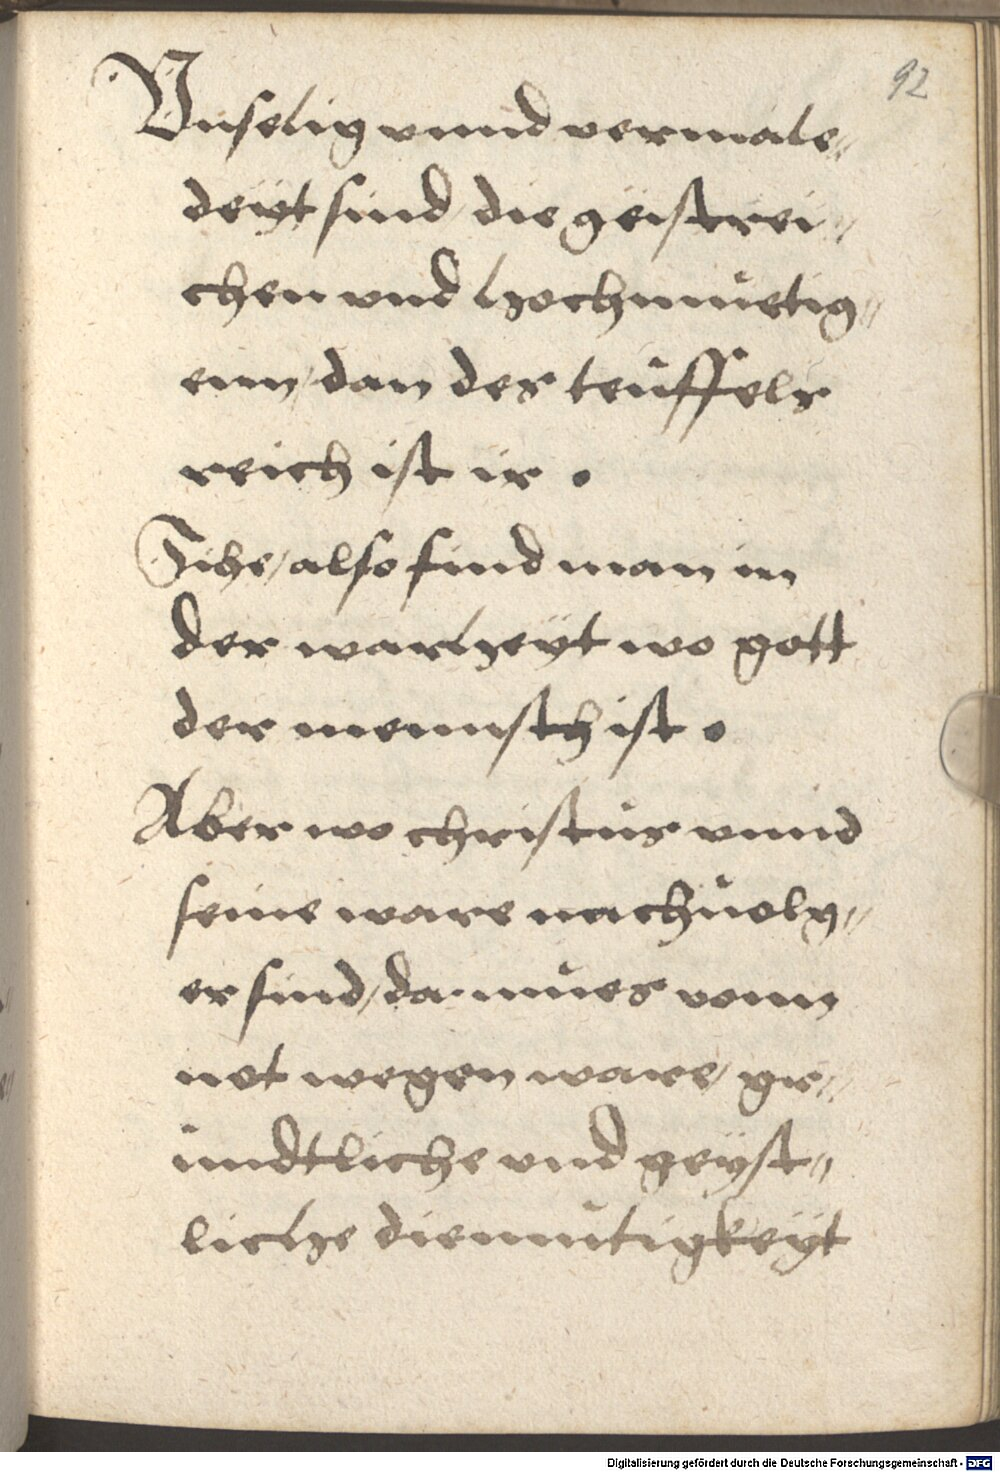 92
Vnselig vnnd vermale„
deÿt sind / die geistrei„
chen vnd hochmuetig„
enn / dan des teuffels
reich ist ir .
Sihe / also find man in
der warheÿt wo gott
der mennsch ist .
Aber wo christus vnnd
seine ware nachuolg„
er sind / da mues vonn
not wegen ware / gr„
undtliche vnd geÿst„
liche diemutigkeÿt
Digitalisierung gefördert durch die Deutsche Forschungsgemeinschaft - DFG